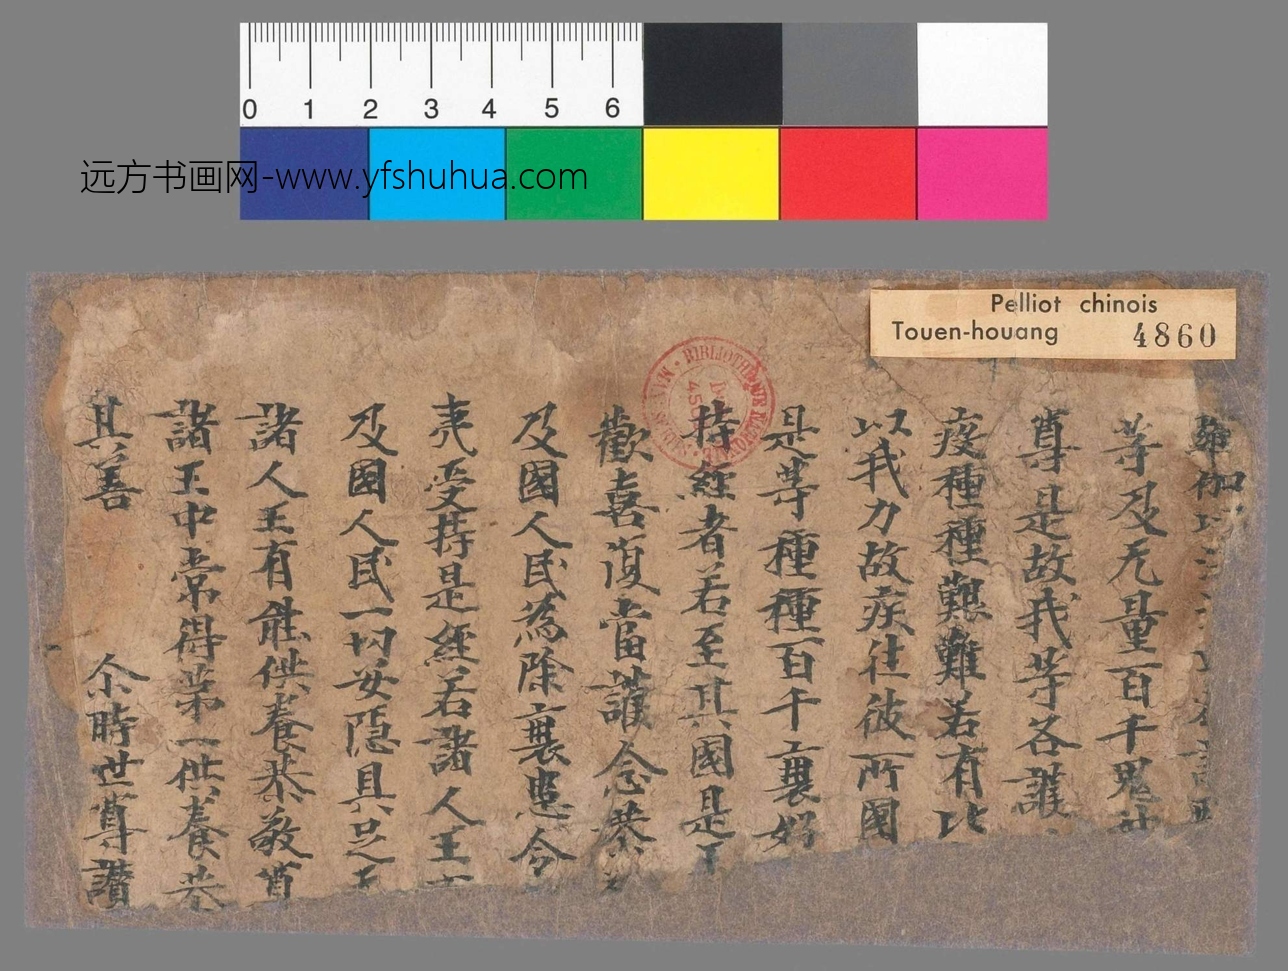 0 1 2 3 4 5 6
远方书画网-www.yfshuhua.com
Pelliot chinois
Touen-houang 4860
等及无量百千鬼神
尊是故我等各護
疫種種艱難若有比
以我力故疾往彼所國
是等種種百千衰惱
持經者若至其國是王
歡喜復當護念恭
及國人民為除衰患令
夷受持是經若諸人王
及國人民一切安隱具足
諸人王有能供養恭敬
諸王中常得第一供養恭
其善 尒時世尊讚